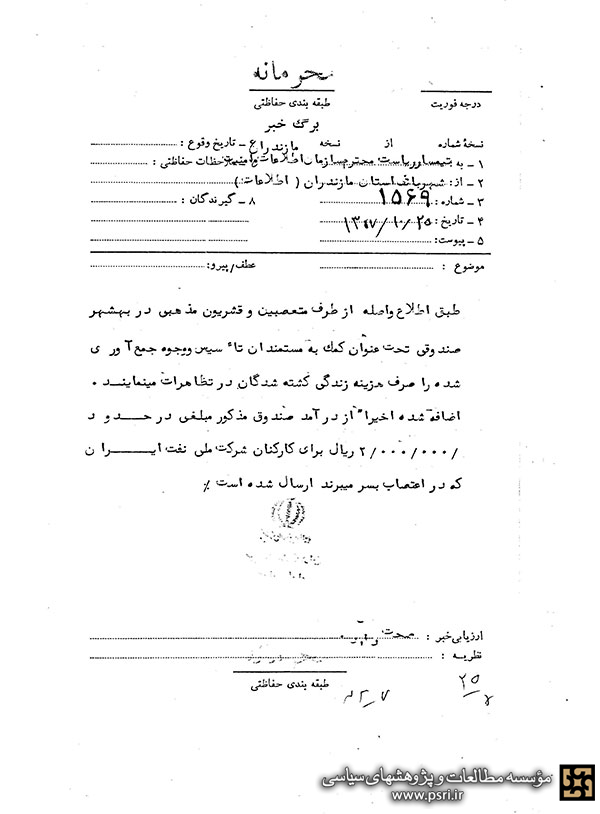 محرمانه
درجه فوریت
طبقه بندی حفاظتی
برگ خبر
نسخهٔ شماره از نسخه
تاریخ وقوع :
۱ ـ به تیمسار ریاست محترم سازمان اطلاعات وامنیت مازندران
ملاحظات حفاظتی :
۲ ـ از: شهربانی استان مازندران ( اطلاعات )
۳ ـ شماره: ۱۵۶۹
۸ ـ گیرندگان :
۴ ـ تاریخ: ۱۳۵۷/۱۰/۲۵
۵ ـ پیوست:
موضوع :
عطف/پیرو:
طبق اطلاع واصله از طرف متعصبین و قشریون مذهبی در بهشهر
صندوقی تحت عنوان کمک به مستمندان تاٴسیس ووجوه جمع آوری
شده را صرف هزینه زندگی کشته شدگان در تظاهرات مینمایند ۰
اضافه شده اخیراً از درآمد صندوق مذکور مبلغی در حدود
۲/۰۰۰/۰۰۰/ ریال برای کارکنان شرکت ملی نفت ایران
که در اعتصاب بسر میبرند ارسال شده است ٪
ارزیابی خبر : صحت دارد
نظریه :
طبقه بندی حفاظتی
۲۵
مؤسسه مطالعات و پژوهشهای سیاسی
www.psri.ir